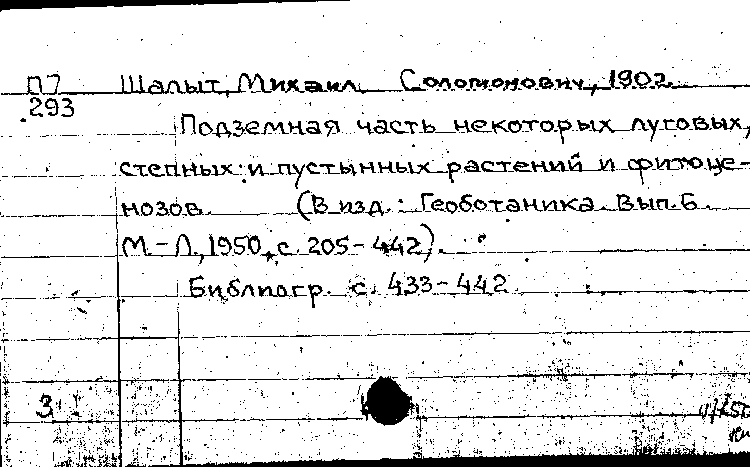 П7 Шалыт, Михаил Соломонович, 1902.
293
Подземная часть некоторых луговых,
степных и пустынных растений и фитоце-
нозов. (В изд.: Геоботаника. Вып. 6.
М.-Л., 1950, с. 205-442).
Библиогр. с. 433-442
3